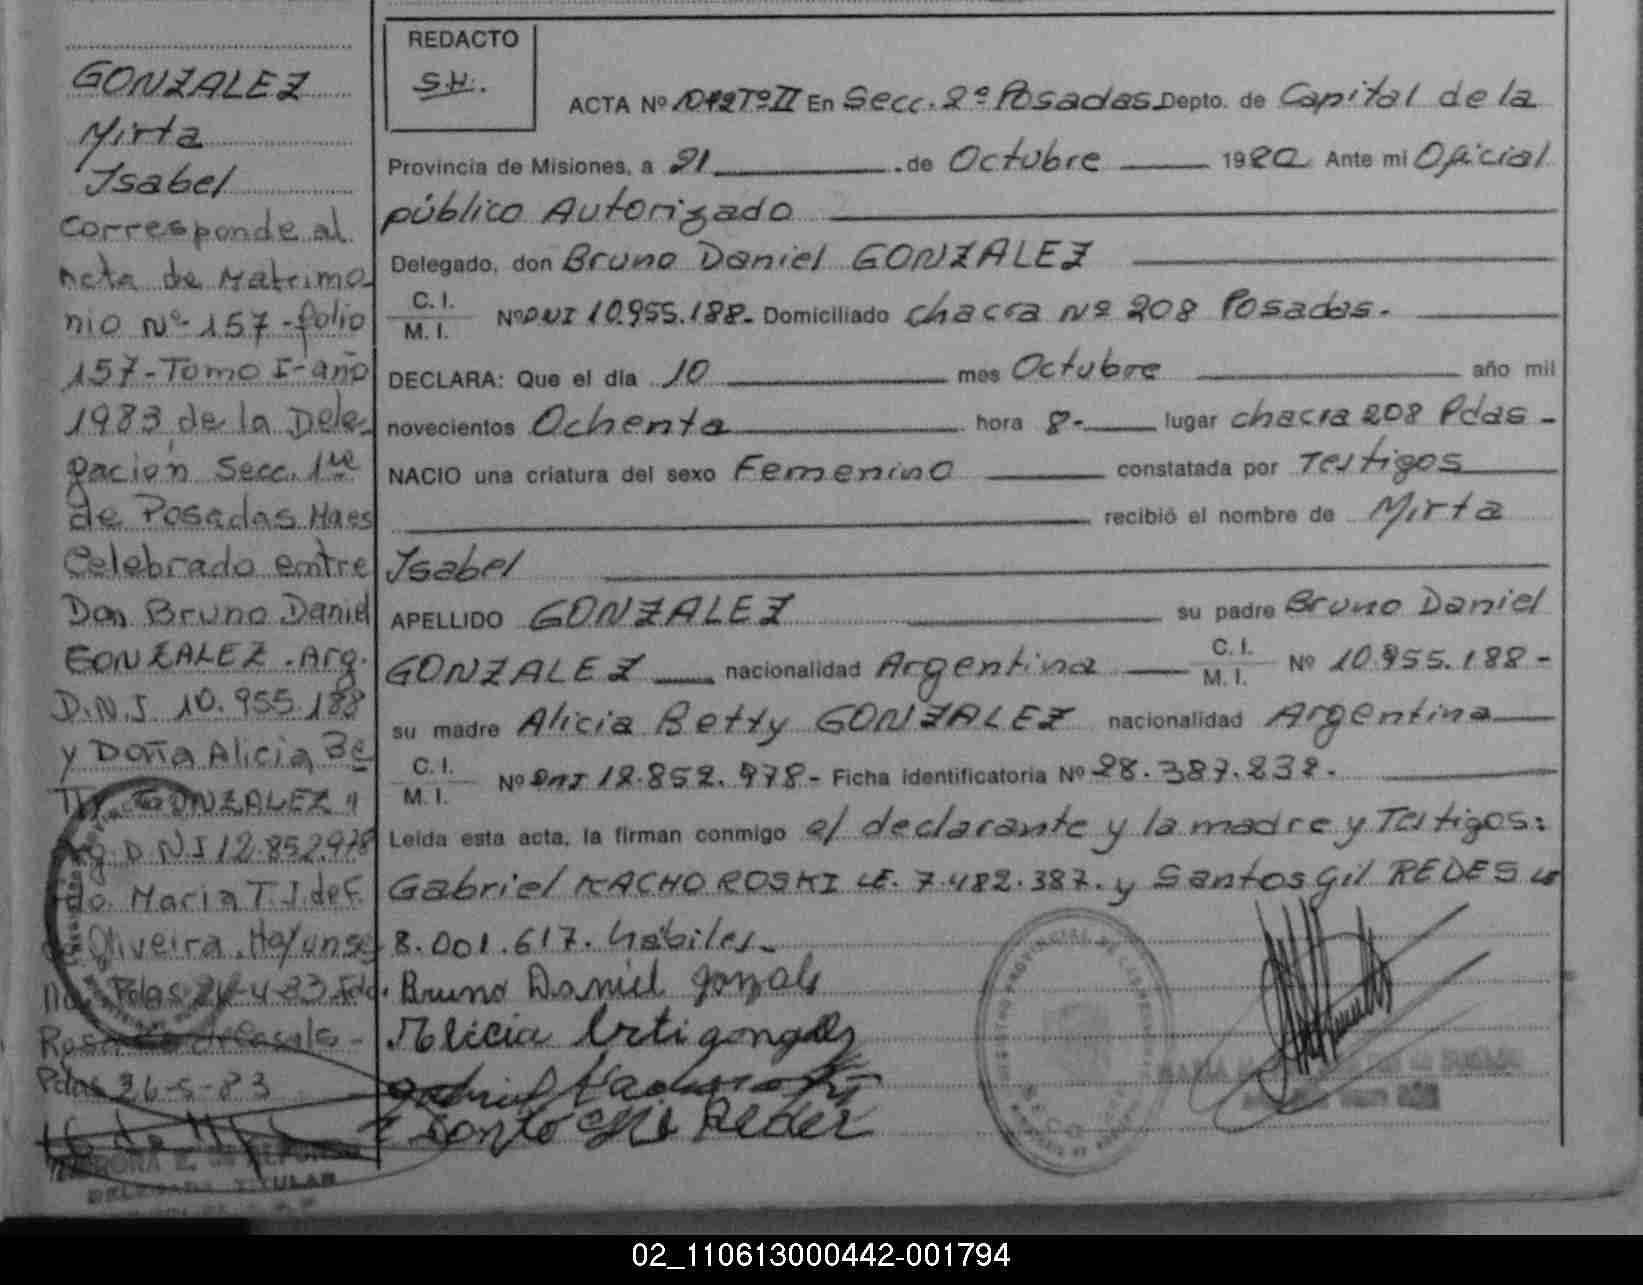 GONZALEZ
Mirta
Isabel
Corresponde al
Acta de Matrimo-
nio Nº 157 - folio
157 - Tomo I - año
1983 de la Dele-
gación Secc. 1ra
de Posadas Mnes
Celebrado entre
Don Bruno Daniel
GONZALEZ. Arg.
D.N.I 10.955.188
y Doña Alicia Be
GONZALEZ
D.N.I 12.852.978
do. Maria T. J. de F.
Oliveira
Pdas 26-5-83
TITULAR
REDACTO
S.H.
ACTA Nº 1012 Tº II En Secc. 2º Posadas Depto. de Capital de la
Provincia de Misiones, a 21 de Octubre 1980 Ante mi Oficial
público Autorizado
Delegado, don Bruno Daniel GONZALEZ
C. I.
M. I. Nº DNI 10.955.188- Domiciliado chacra Nº 208 Posadas.
DECLARA: Que el día 10 mes Octubre año mil
novecientos Ochenta hora 8- lugar chacra 208 Pdas -
NACIO una criatura del sexo Femenino constatada por Testigos
recibió el nombre de Mirta
Isabel
APELLIDO GONZALEZ su padre Bruno Daniel
GONZALEZ nacionalidad Argentina C. I. M. I. Nº 10.955.188 -
su madre Alicia Betty GONZALEZ nacionalidad Argentina
C. I.
M. I. Nº DNI 12.852.978- Ficha identificatoria Nº 28.387.232.
Leída esta acta, la firman conmigo el declarante y la madre y Testigos:
Gabriel KACHOROSKI LE. 7.482.387. y Santos Gil REDES LE
8.001.617. habiles.
Bruno Daniel
Alicia
02_110613000442-001794